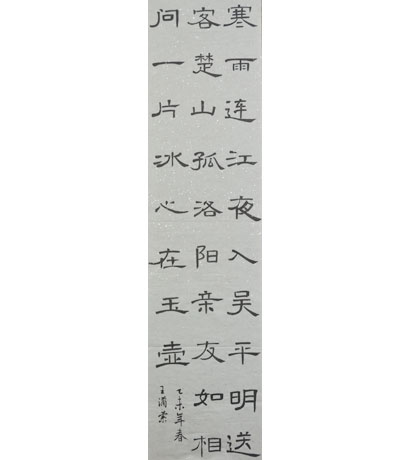 寒雨连江夜入吴平明送
客楚山孤洛阳亲友如相
问一片冰心在玉壶
乙未年春
王